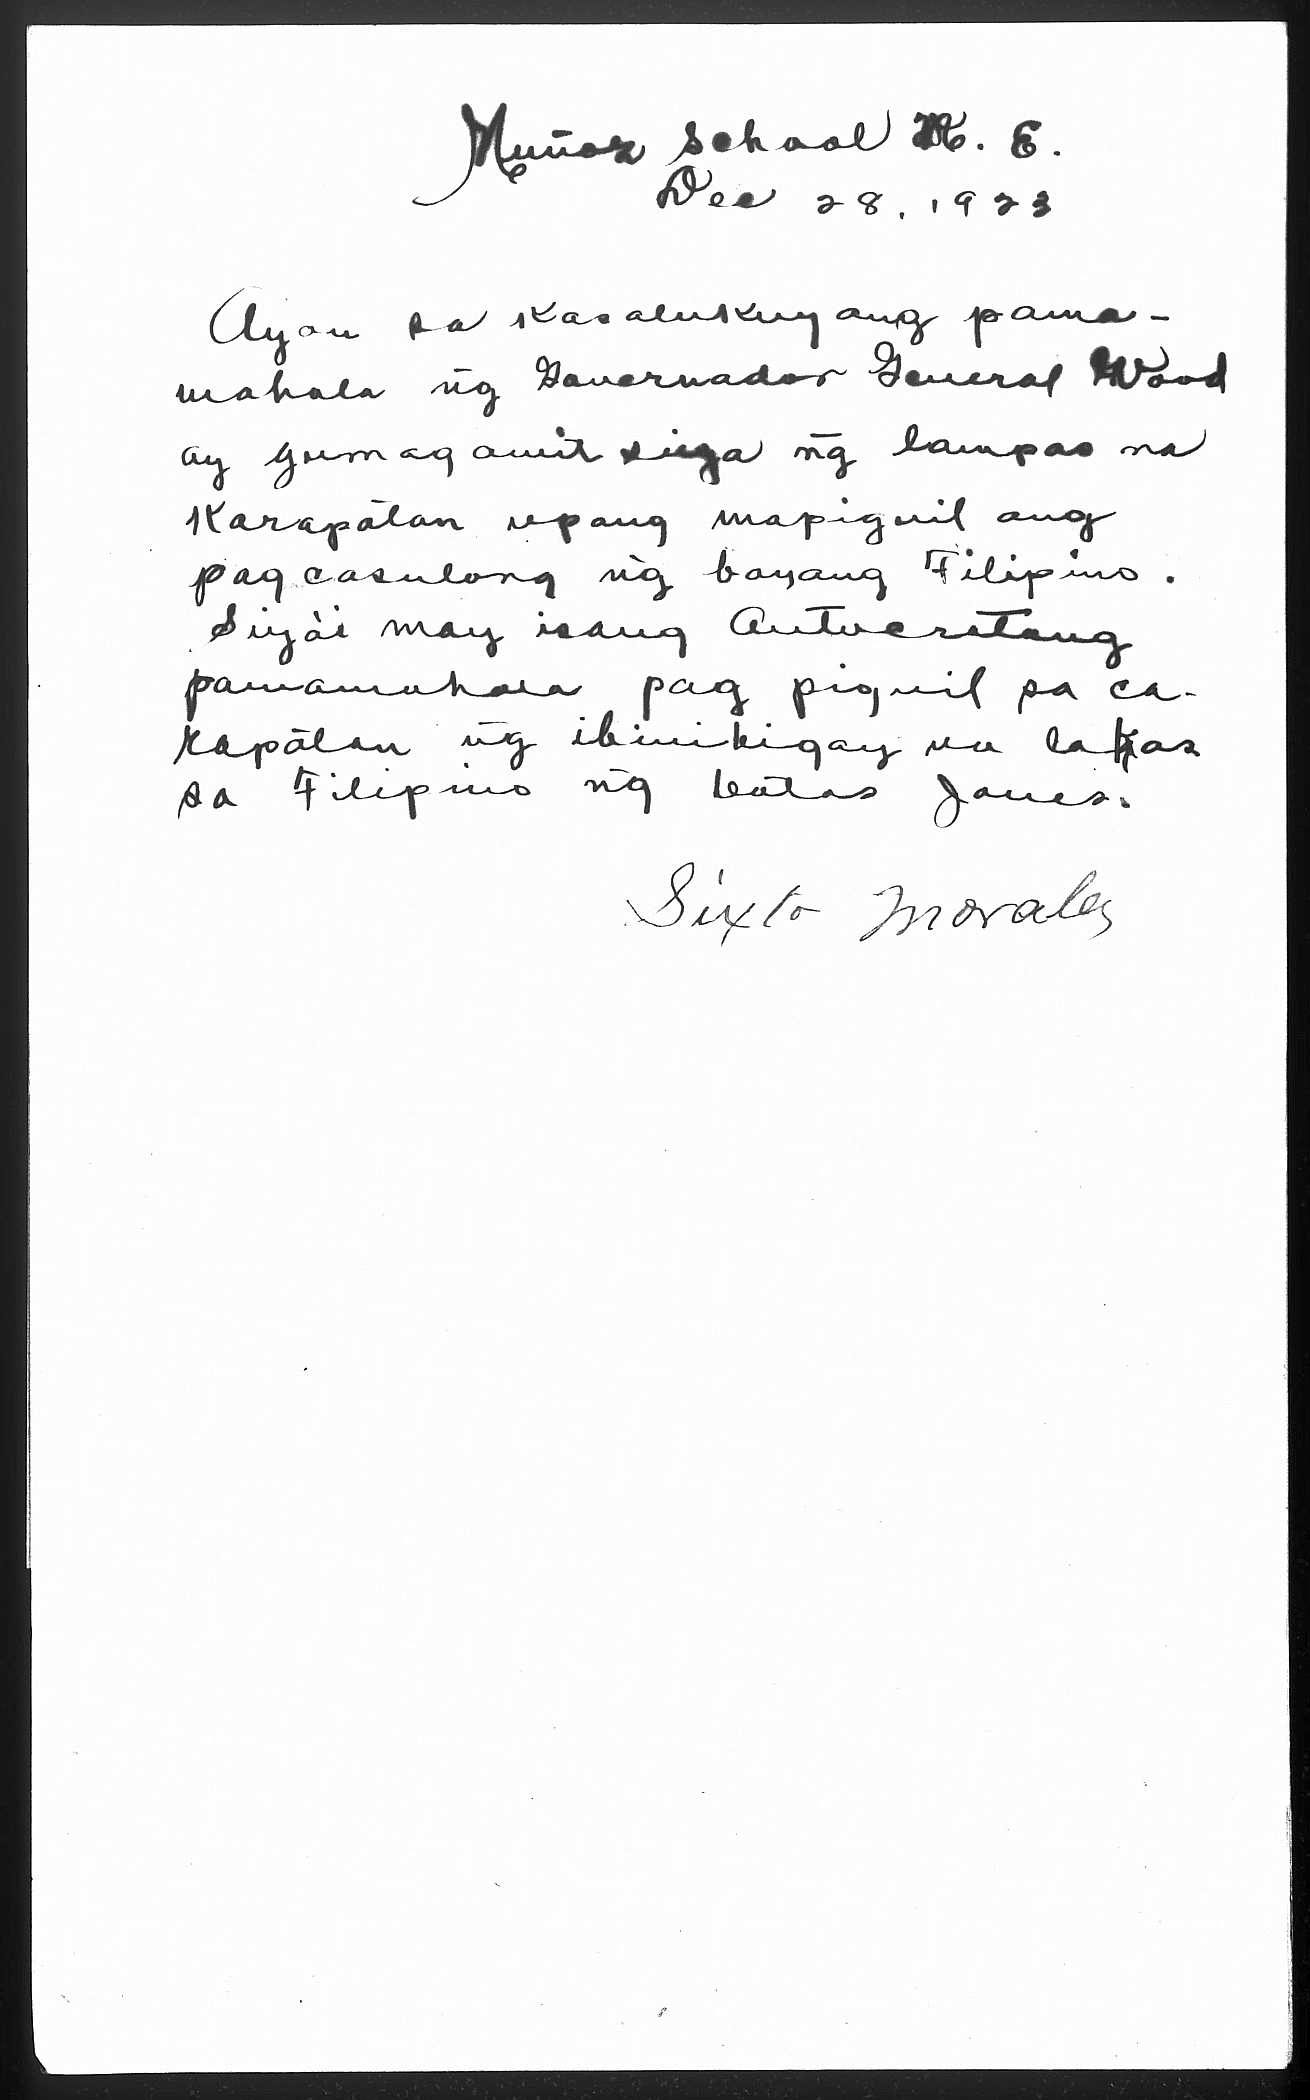 Muñoz School N. E.
Dec 28, 1923
Ayon sa Kasalukuyang pama-
mahala n̄g Gouernador General Wood
ay gumagamit siya n̄g lampas na
Karapātan upang mapiguil ang
pagcasulong n̄g bayang Filipino.
Siyài may isang Autocratang
pamamahala pag piguil sa ca-
rapātan n̄g ibinibigay na lakas
sa Filipino n̄g bātas Jones.
Sixto Morales